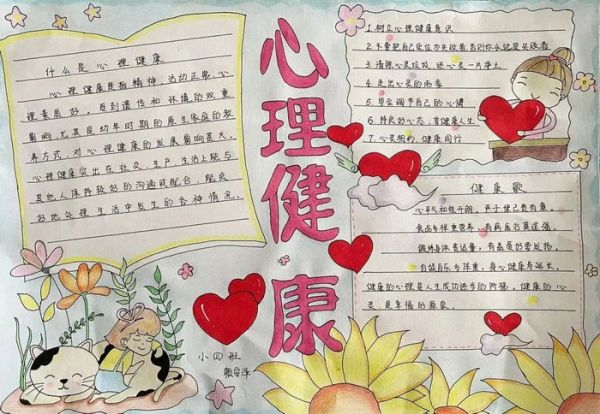 心理健康
什么是心理健康
心理健康是指精神、活动正常、心
理素质好。受到遗传和环境的双重
影响,尤其是幼年时期的原生家庭的教
养方式,对心理健康的发展影响甚大。
心理健康突出在社交、生产、生活上能与
其他人保持较好的沟通或配合,能良
好地处理生活中发生的各种情况。
1.树立心理健康意识
2.不要把自己定位为失败者,否则你永远是失败者
3.清除心灵垃圾,还心灵一片净土
4.走出心灵的雨季
5.学会调节自己的心情
6.持良好心态,享健康人生
7.心灵相约,健康同行
健康歌
心平气和能开朗,
食品多样重营养,
锻炼身体贵适量,有益
自娱自乐多种重,身心健康寿延长。
健康的心理是人生成功进步的阶梯,健康的心
灵是幸福的源泉。
小四班